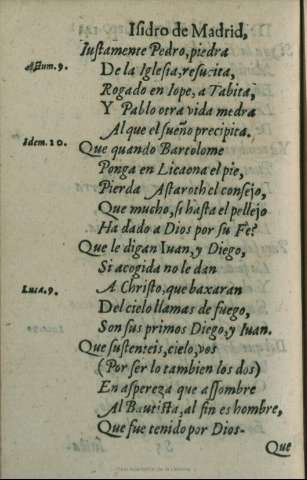 Isidro de Madrid,
Iustamente Pedro, piedra
Actum. 9. De la Iglesia, resucita,
Rogado en Iope, a Tabita,
Y Pablo otra vida medra
Al que el sueño precipita.
Idem. 20. Que quando Bartolome
Ponga en Licaona el pie,
Pierda Astaroth el consejo,
Que mucho, si hasta el pellejo
Ha dado a Dios por su Fe?
Que le digan Iuan, y Diego,
Si acogida no le dan
Luca. 9. A Christo, que baxaran
Del cielo llamas de fuego,
Son sus primos Diego, y Iuan.
Que sustenteis, cielo, vos
(Por ser lo tambien los dos)
En aspereza que assombre
Al Bautista, al fin es hombre,
Que fue tenido por Dios-
Que